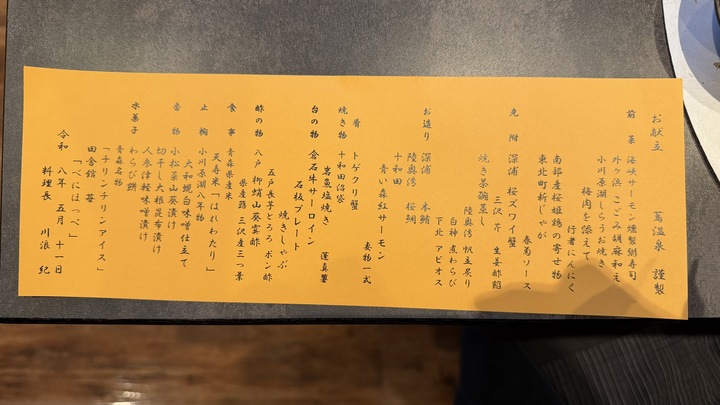 お献立 蔦温泉 謹製
前菜 海峡サーモン燻製粥寿司
外ヶ浜 こごみ胡麻和え
小川原湖しらうお焼き
行者にんにく
梅肉を添えて
南部産桜姫鶏の寄せ物
春菊ソース
東北町新じゃが
先附 深浦 桜ズワイ蟹
三沢芹 生姜酢餡
焼き茶碗蒸し
陸奥湾 帆立炙り
白神 煮わらび
下北 アピオス
お造り 深浦 本鮪
陸奥湾 桜鯛
十和田
青い森紅サーモン
妻物一式
肴 トゲクリ蟹
焼き物 十和田沼袋
岩魚塩焼き 蓮真薯
台の物 倉石牛サーロイン
石板プレート
焼きしゃぶ
五戸長芋とろろ ポン酢
酢の物 八戸 柳蛸山葵霙酢
県産蕗 三沢産三つ葉
食事 青森県産米
天寿米「はれわたり」
止椀 小川原湖の幸物
大和蜆白味噌仕立て
香物 小松菜山葵漬け
切干し大根昆布漬け
人参津軽味噌漬け
水菓子 わらび餅
青森名物
「チリンチリンアイス」
田舎館 苺
「べにほっぺ」
令和 八年 五月 十一日
料理長 川浪 紀